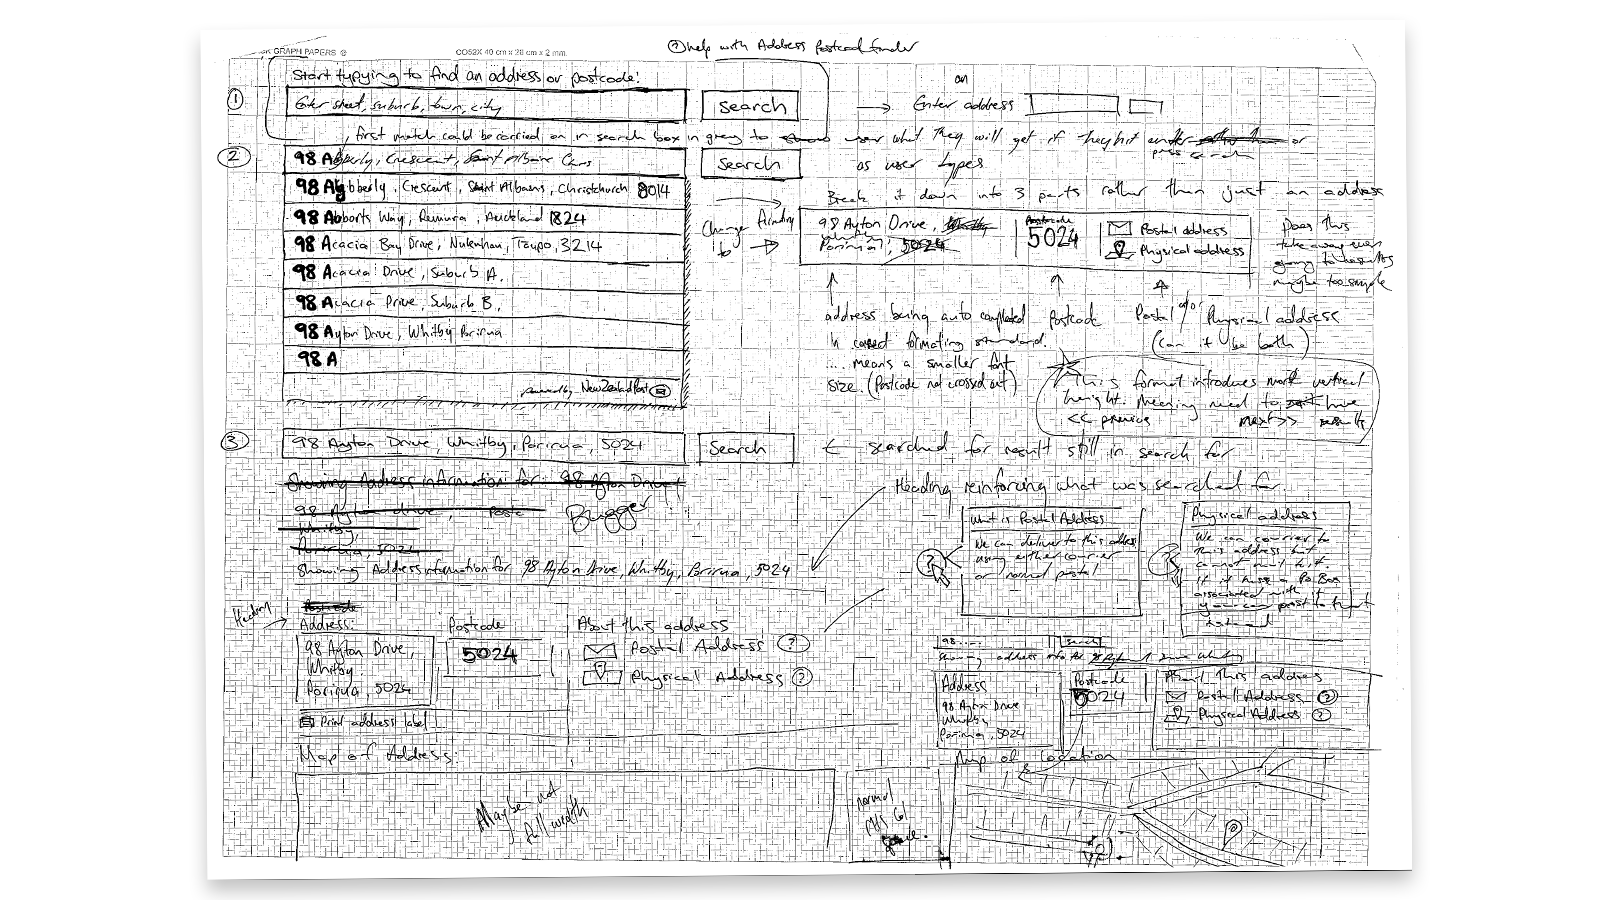 GRAPH PAPERS ®
CO52X 40 cm x 28 cm x 2 mm.
? help with Address Postcode finder
Start typying to find an address or postcode:
1
Enter street, suburb, town, city
search
→ Enter address
an
first match could be carried on in search box in grey to show user what they will get if they hit or
press search
as user types
2
98 Abberly, Crescent, Saint Albans
Search
98 Abberly, Crescent, Saint Albans, Christchurch 8014
98 Abborts Way, Remura, Auckland 1824
98 Acacia Bay Drive, Nukuhau, Taupo, 3214
98 Acacia Drive, Suburb A,
98 Acacia Drive, Suburb B,
98 Ayton Drive, Whitby Porirua
98 A
powered by New Zealand Post
Break it down into 3 parts rather than just an address
Change
to
98 Ayton Drive, Whitby
Porirua, 5024
Postcode
5024
Postal address
Physical address
Does this
take away even
going to results
maybe too simple
address being auto completed
in correct formating standard.
.... means a smaller font
size. (Postcode not crossed out)
Postcode
Postal or Physical address
(can it be both)
This format introduces more vertical
height. Meaning need to have
<< previous next >> results
3
98 Ayton Drive, Whitby, Porirua, 5024
Search
← searched for result still in search for
Showing Address information for: 98 Ayton Drive,
98 Ayton drive, Poste
Whitby,
Porirua, 5024
Bugger
Showing Address information for 98 Ayton Drive, Whitby, Porirua, 5024
Heading reinforcing what was searched for
What is Postal Address
We can deliver to this address
using either courier
or normal postal
?
Physical address
We can courier to
this address but
cannot mail to it.
if it has a Po Box
associated with it
you can post to that
instead
Heading
Postcode
Address:
98 Ayton Drive,
Whitby
Porirua, 5024
Print address label
Postcode
5024
About this address
Postal Address ?
Physical Address ?
Map of Address:
Maybe not
full width
normal
98.....
search
Showing address info for 98 Ayton Drive Whitby
Address
98 Ayton Drive
Whitby
Porirua, 5024
Postcode
5024
About this address
Postal Address ?
Physical Address ?
Map of location